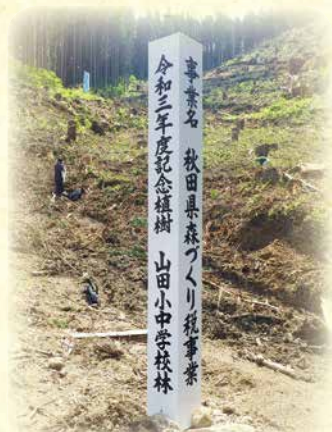 事業名 秋田県森づくり税事業
令和三年度記念植樹 山田小中学校林